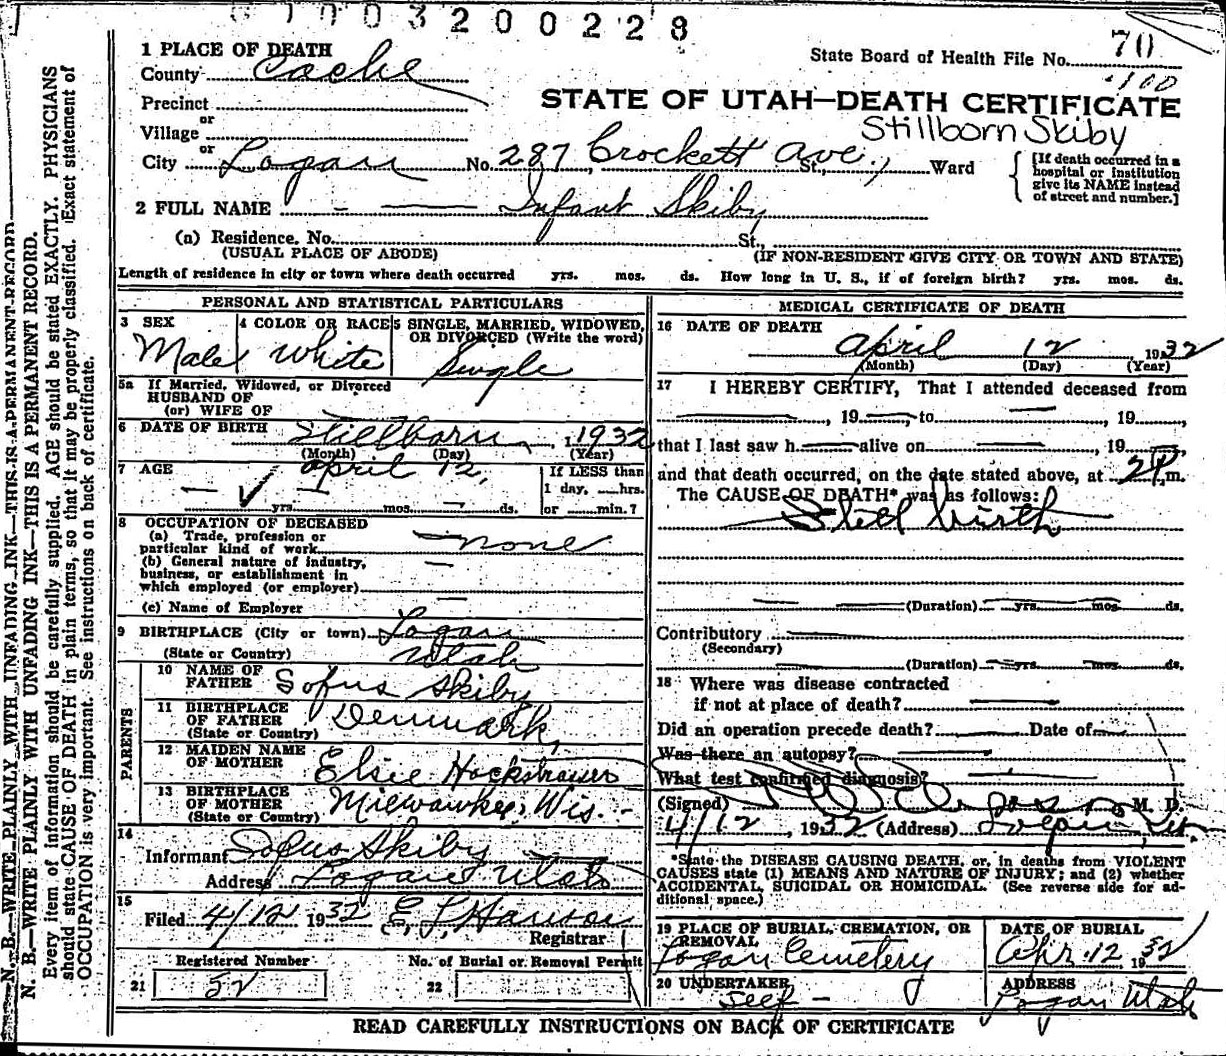 003200228
1 PLACE OF DEATH
State Board of Health File No. 70
County Cache
100
Precinct
STATE OF UTAH—DEATH CERTIFICATE
or
Village
Stillborn Skiby
or
City Logan No. 287 Crockett Ave. St., Ward
[If death occurred in a
hospital or institution
give its NAME instead
of street and number.]
2 FULL NAME Infant Skiby
(a) Residence, No. St.,
(USUAL PLACE OF ABODE) (IF NON-RESIDENT GIVE CITY OR TOWN AND STATE)
Length of residence in city or town where death occurred yrs. mos. ds. How long in U. S., if of foreign birth? yrs. mos. ds.
PERSONAL AND STATISTICAL PARTICULARS
3 SEX 4 COLOR OR RACE 5 SINGLE, MARRIED, WIDOWED,
OR DIVORCED (Write the word)
Male White Single
5a If Married, Widowed, or Divorced
HUSBAND OF
(or) WIFE OF
6 DATE OF BIRTH Stillborn, 1932
(Month) (Day) (Year)
April 12,
7 AGE If LESS than
1 day, hrs.
yrs. mos. ds. or min.?
8 OCCUPATION OF DECEASED
(a) Trade, profession or
particular kind of work none
(b) General nature of industry,
business, or establishment in
which employed (or employer)
(c) Name of Employer
9 BIRTHPLACE (City or town) Logan
(State or Country) Utah
PARENTS
10 NAME OF
FATHER Sofus Skiby
11 BIRTHPLACE
OF FATHER Denmark,
(State or Country)
12 MAIDEN NAME
OF MOTHER Elsie
13 BIRTHPLACE
OF MOTHER Milwawkee, Wis.
(State or Country)
14
Informant Sofus Skiby
Address Logan Utah
15
Filed 4/12 1932 E. L. Hanson
Registrar
Registered Number No. of Burial or Removal Permit
21 52 22
MEDICAL CERTIFICATE OF DEATH
16 DATE OF DEATH
April 12, 1932
(Month) (Day) (Year)
17 I HEREBY CERTIFY, That I attended deceased from
, 19 to , 19
that I last saw h alive on , 19
and that death occurred, on the date stated above, at 2 P. m.
The CAUSE OF DEATH* was as follows:
Still birth
(Duration) yrs. mos. ds.
Contributory
(Secondary)
(Duration) yrs. mos. ds.
18 Where was disease contracted
if not at place of death?
Did an operation precede death? Date of
Was there an autopsy?
What test confirmed diagnosis?
(Signed) M. D.
4/12, 1932 (Address) Logan, Ut.
*State the DISEASE CAUSING DEATH, or, in deaths from VIOLENT
CAUSES state (1) MEANS AND NATURE OF INJURY; and (2) whether
ACCIDENTAL, SUICIDAL OR HOMICIDAL. (See reverse side for ad-
ditional space.)
19 PLACE OF BURIAL, CREMATION, OR
REMOVAL
Logan Cemetery
DATE OF BURIAL
Apr. 12 1932
20 UNDERTAKER
Self
ADDRESS
Logan Utah
READ CAREFULLY INSTRUCTIONS ON BACK OF CERTIFICATE
N. B.—WRITE PLAINLY WITH UNFADING INK—THIS IS A PERMANENT RECORD
N. B.—WRITE PLAINLY WITH UNFADING INK—THIS IS A PERMANENT RECORD.
Every item of information should be carefully supplied. AGE should be stated EXACTLY. PHYSICIANS
should state CAUSE OF DEATH in plain terms, so that it may be properly classified. Exact statement of
OCCUPATION is very important. See instructions on back of certificate.